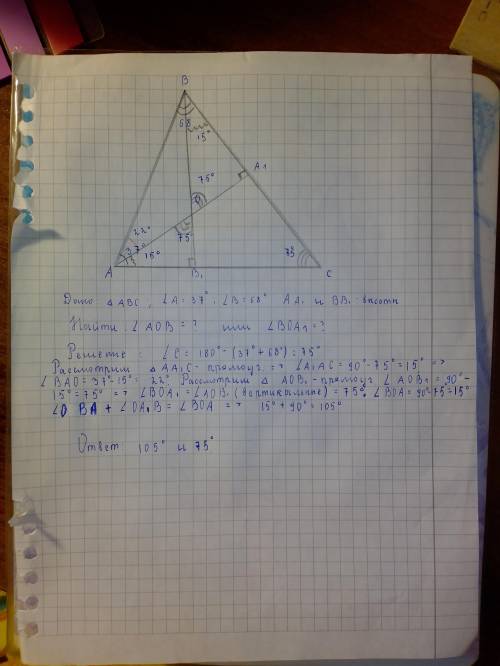 B
68
15°
A₁
75°
O
22°
75
37°
15°
75°
A
B₁
C
Дано △ABC, ∠A=37°, ∠B=68° AA₁ и BB₁ - высоты
Найти ∠AOB = ? или ∠BOA₁ = ?
Решение: ∠C = 180° - (37° + 68°) = 75°
Рассмотрим △AA₁C - прямоуг. => ∠A₁AC = 90° - 75° = 15° =>
∠BAO = 37° - 15° = 22°. Рассмотрим △ AOB₁ - прямоуг. ∠AOB₁ = 90° -
15° = 75° => ∠BOA₁ = ∠AOB₁ (вертикальные) = 75°, ∠BOA = 90° - 75 = 15°
∠OBA + ∠OA₁B = ∠BOA => 15° + 90° = 105°
Ответ 105° и 75°